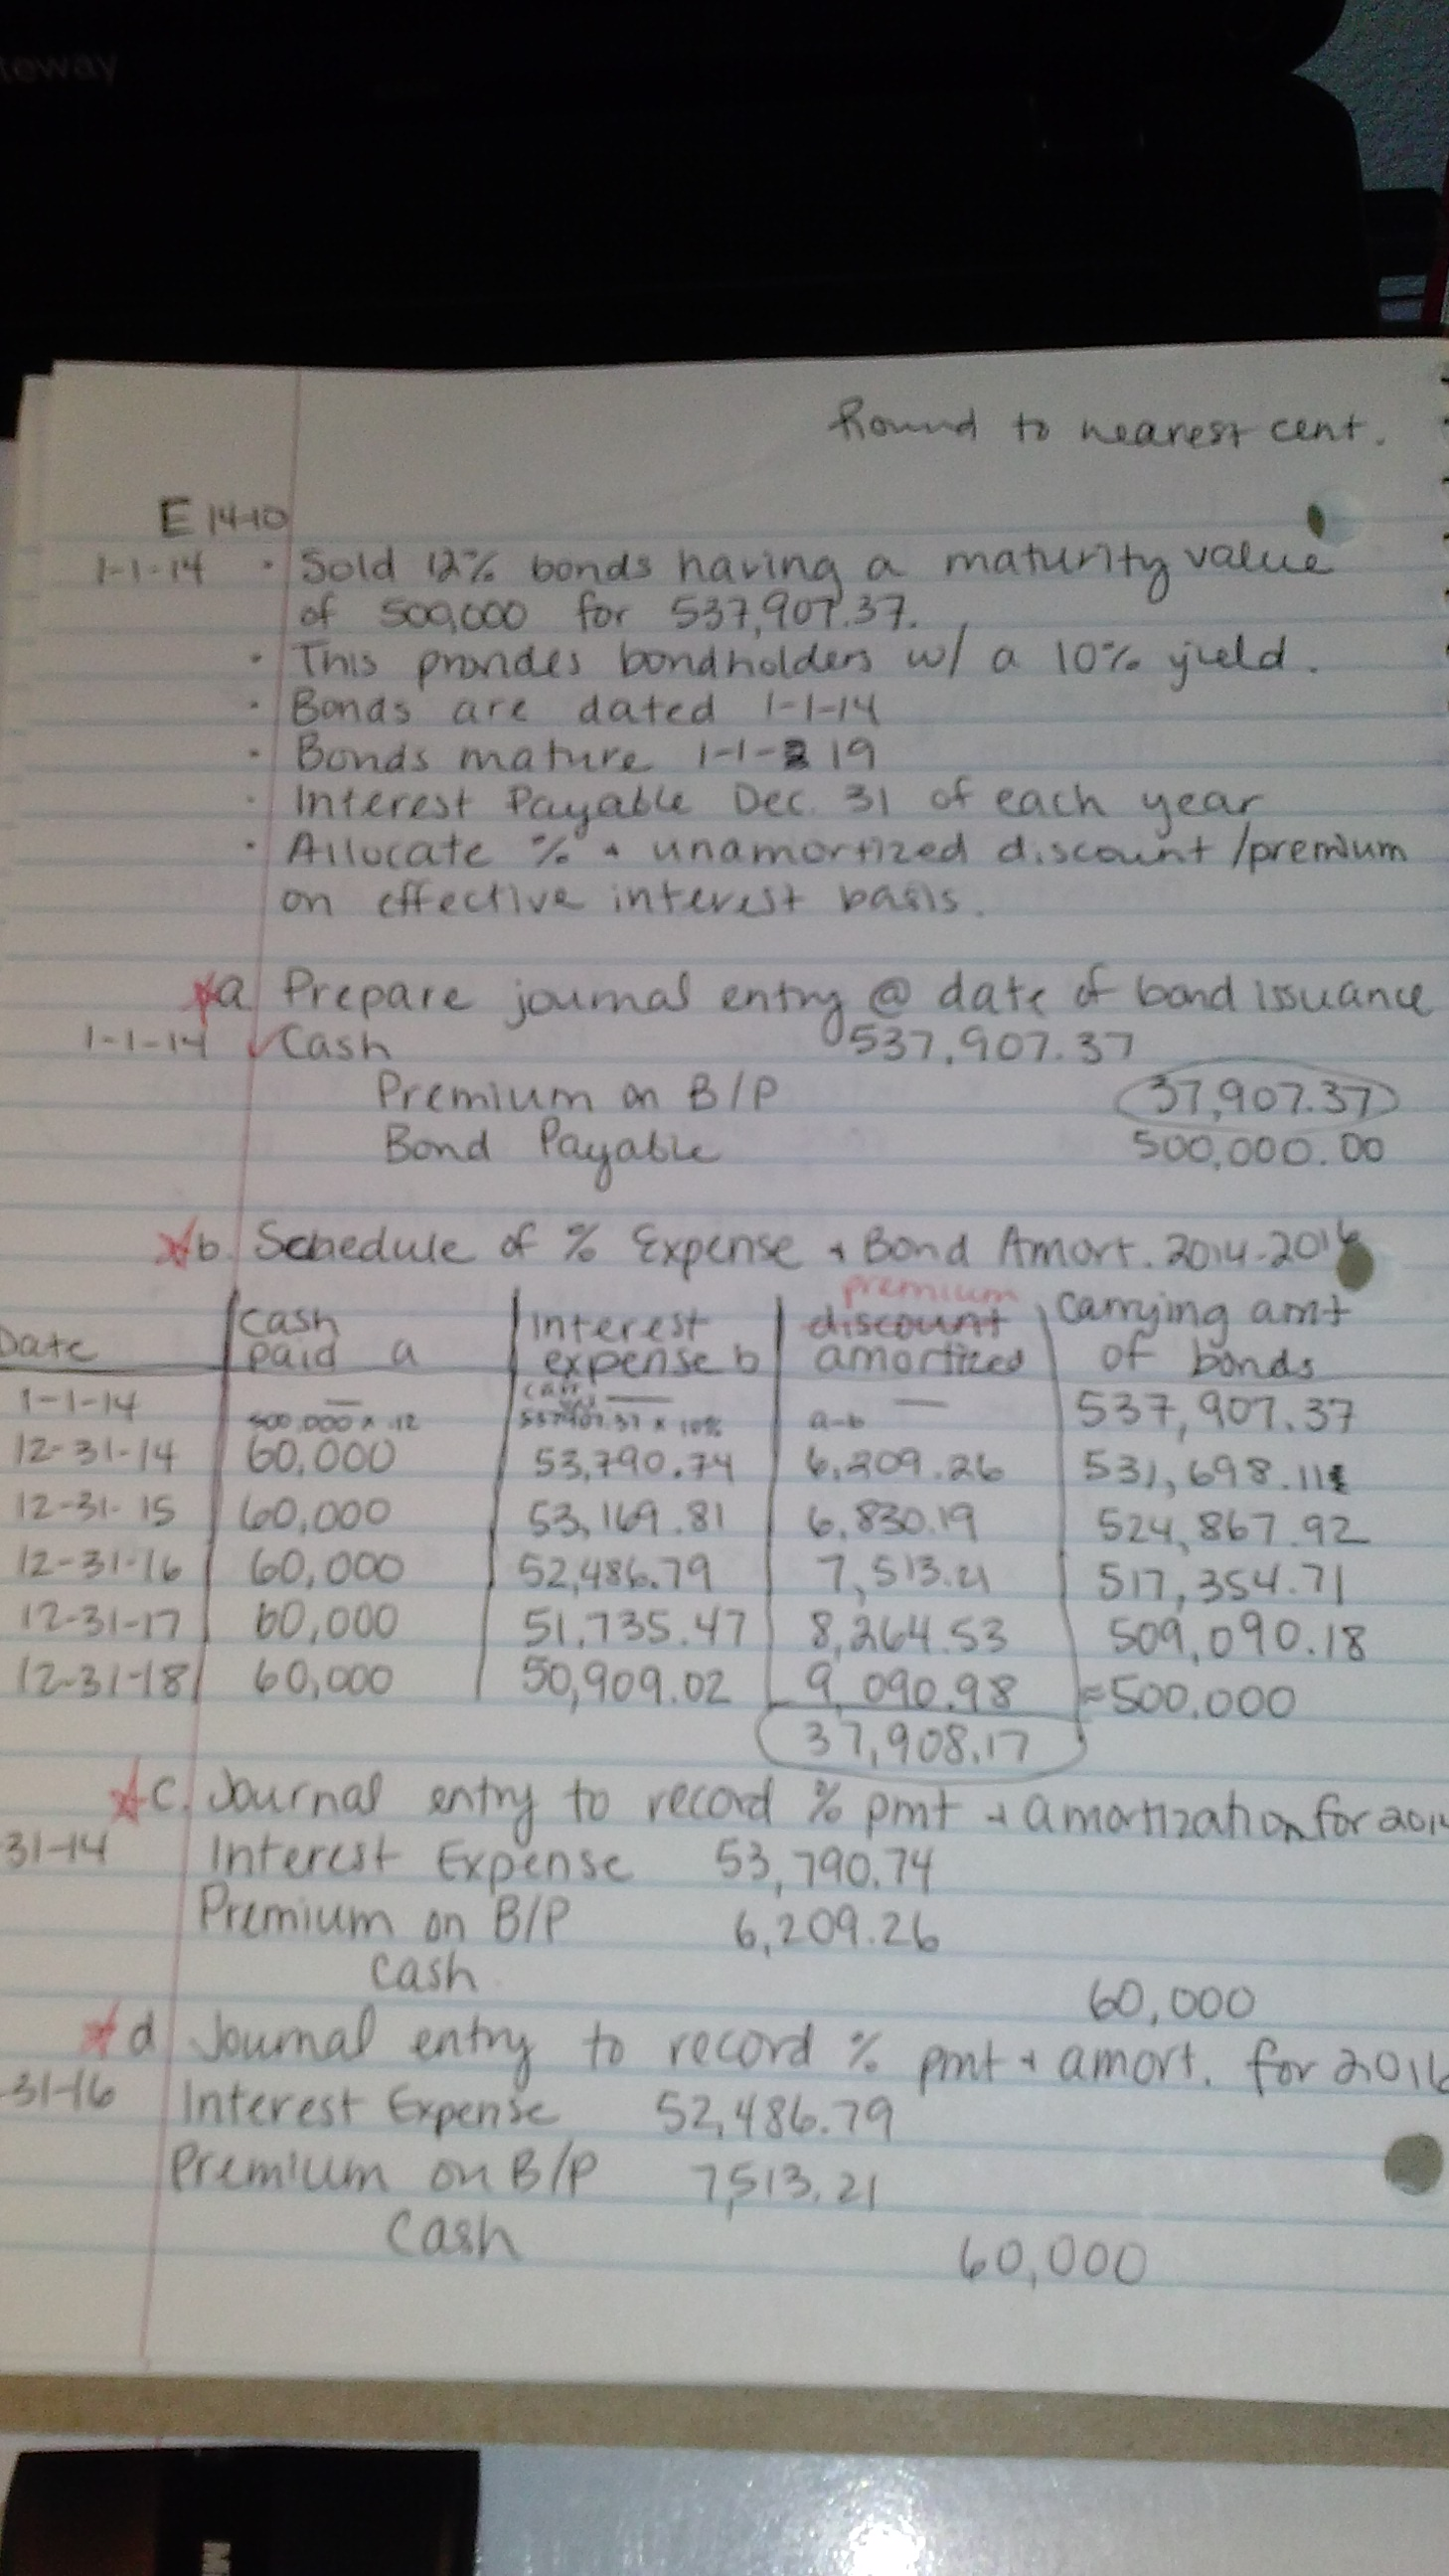 teway
Round to nearest cent.
E 14-10
1-1-14 · Sold 12% bonds having a maturity value
of 500,000 for 537,907.37.
· This provides bondholders w/ a 10% yield.
· Bonds are dated 1-1-14
· Bonds mature 1-1-19
· Interest Payable Dec. 31 of each year
· Allocate % + unamortized discount/premium
on effective interest basis.
*a Prepare journal entry @ date of bond issuance
1-1-14 ✓ Cash 537,907.37
Premium on B/P 37,907.37
Bond Payable 500,000.00
*b. Schedule of % Expense + Bond Amort. 2014-2016
premium
Date cash paid a interest expense b discount amortized carrying amt of bonds
1-1-14 — — — 537,907.37
500,000 x .12 537907.37 x 10% a-b
12-31-14 60,000 53,790.74 6,209.26 531,698.11
12-31-15 60,000 53,169.81 6,830.19 524,867.92
12-31-16 60,000 52,486.79 7,513.21 517,354.71
12-31-17 60,000 51,735.47 8,264.53 509,090.18
12-31-18 60,000 50,909.02 9,090.98 ≈500,000
37,908.17
*c. Journal entry to record % pmt + amortization for 2014
31-14 Interest Expense 53,790.74
Premium on B/P 6,209.26
Cash 60,000
*d Journal entry to record % pmt + amort. for 2016
-31-16 Interest Expense 52,486.79
Premium on B/P 7,513.21
Cash 60,000